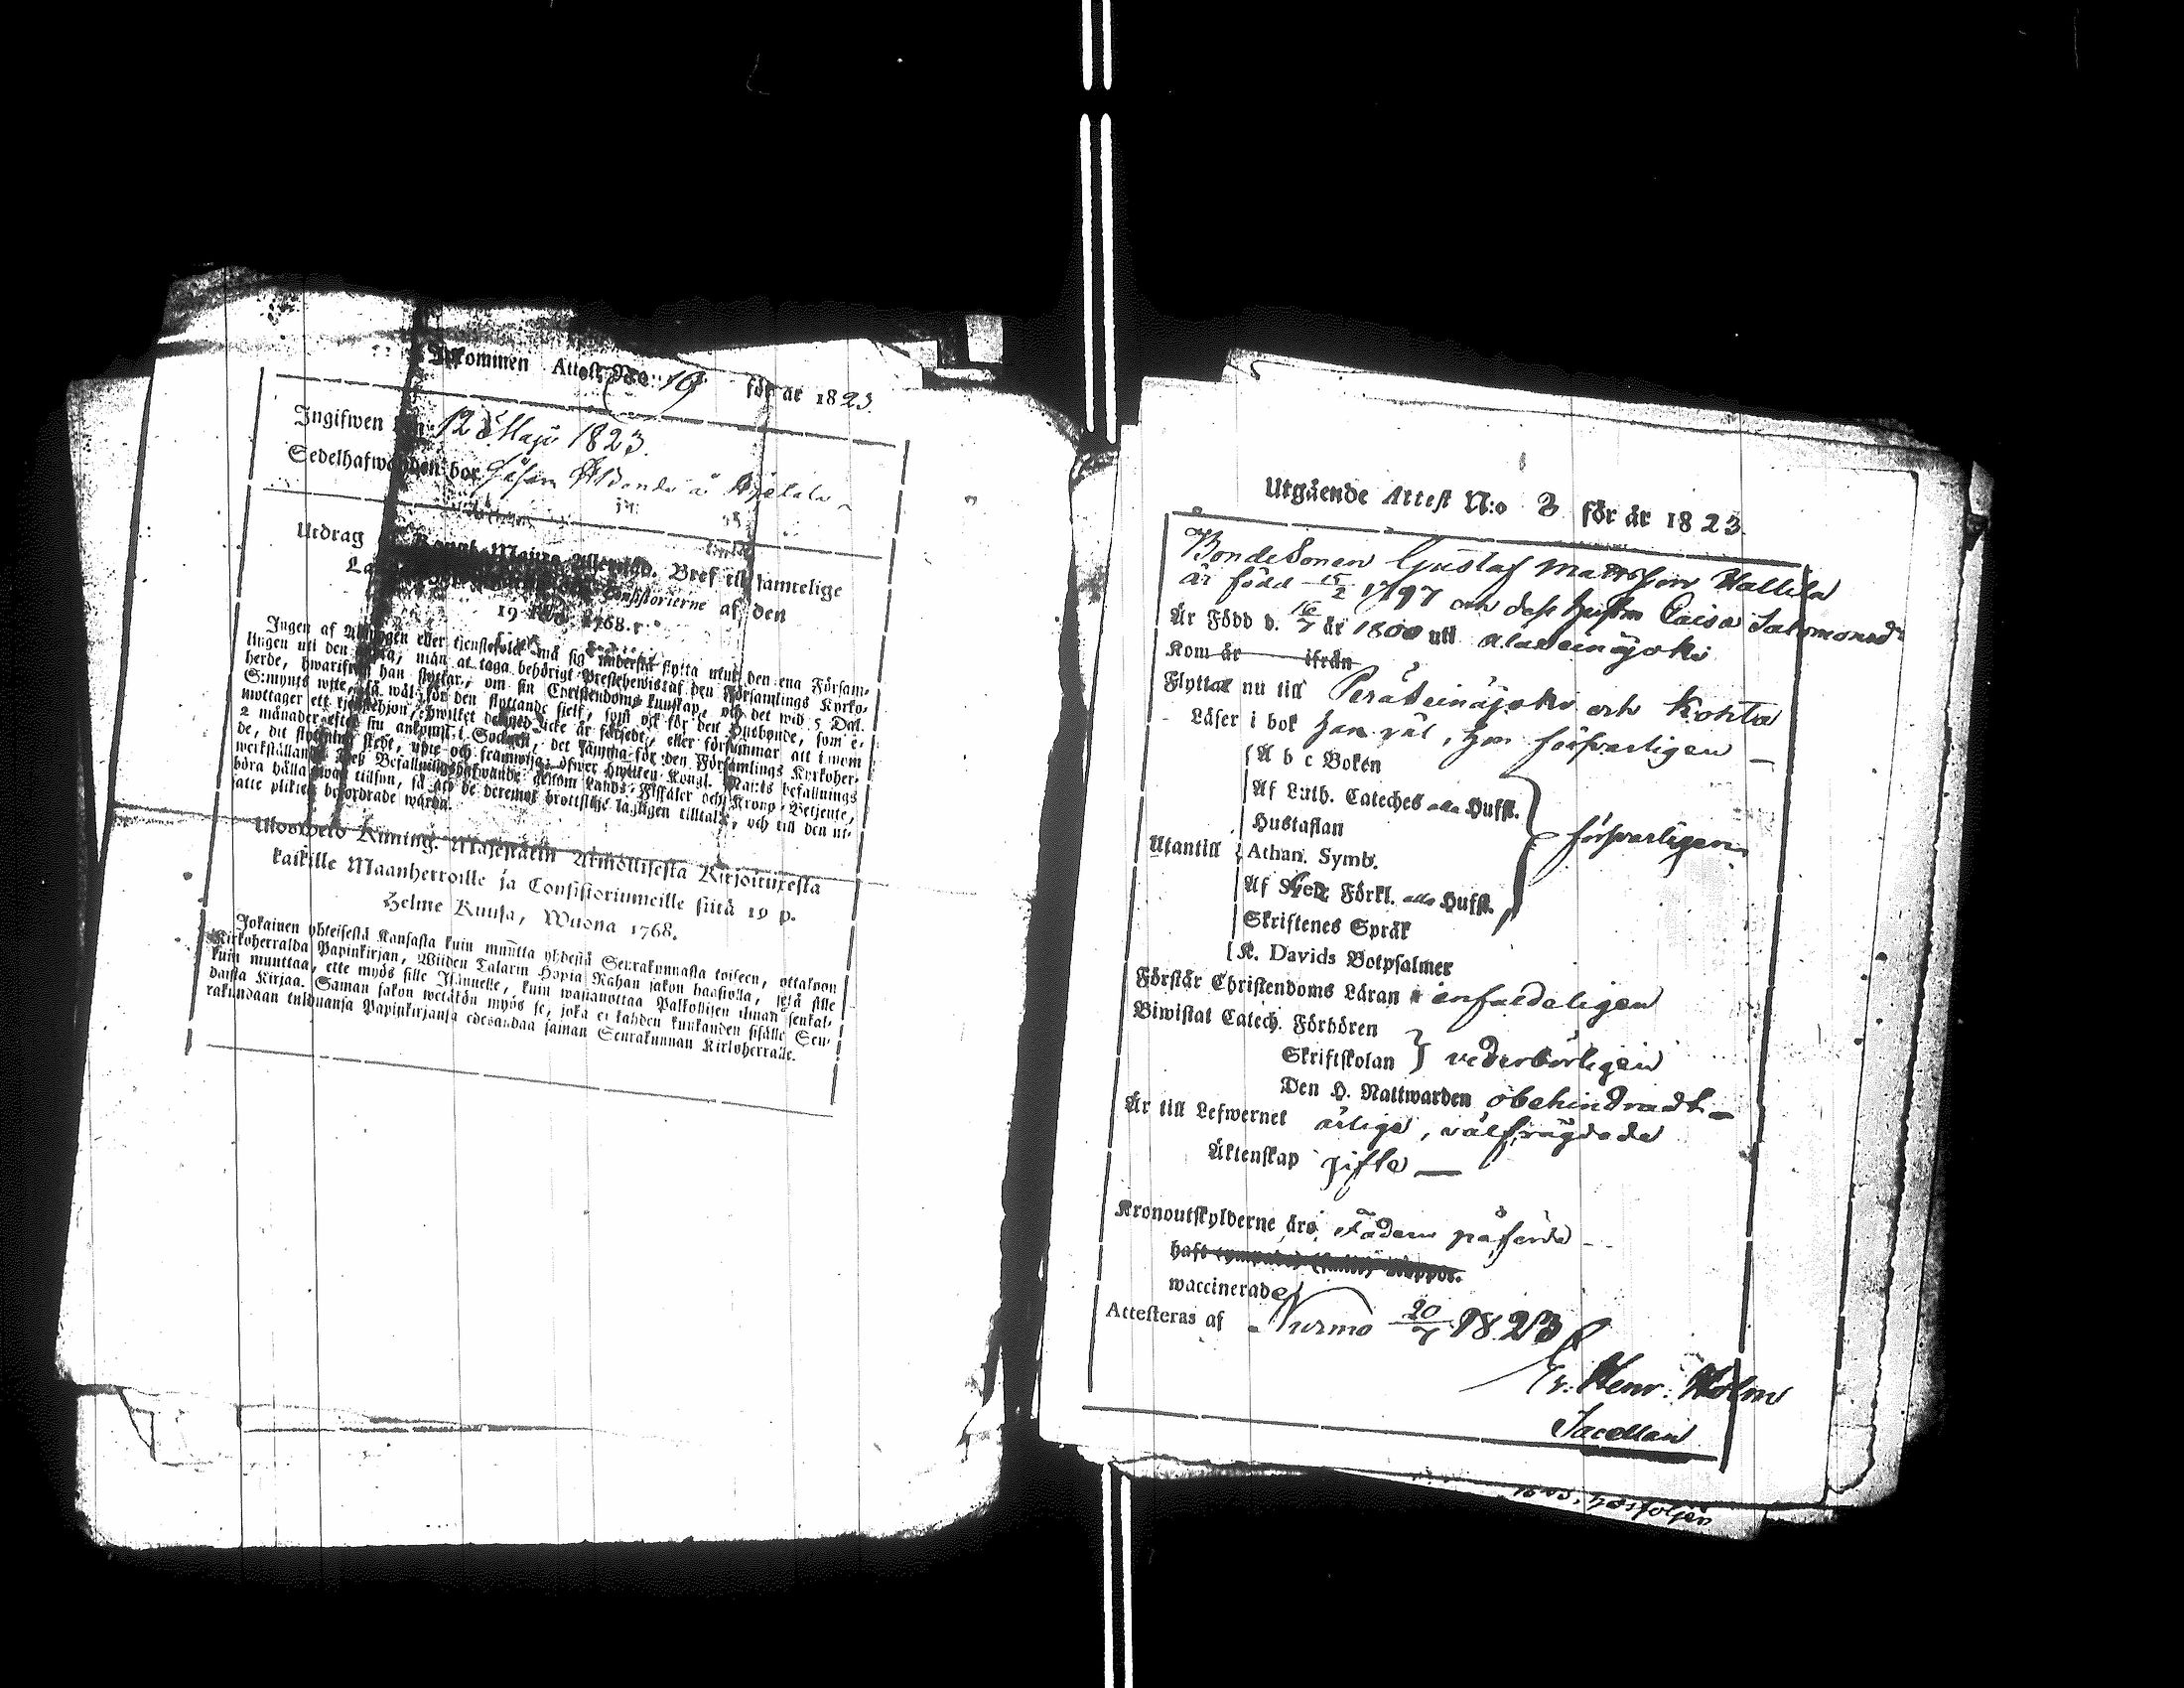 Inkommen Attest No: 19 för år 1823.
Ingifwen den 12 Maji 1823.
Sedelhafwanden bor
Utdrag Kongl. Majts Allernåd. Bref till samtelige
Consistorierne af den
19 1768.
Ingen af eller tjenstefolck må sig understå flytta utur den ena Församlingen
uti den andra, mån at taga behörigt Prestebewis af den Församlings Kyrkoherde,
hwarifrån han flyttar, om sin Christendoms kunskap, och det wid 5 Dal.
S:mynts wite, så wäl för den flyttande sjelf, som ock för den Husbonde, som emottager
ett tjenstehjon, hwilket dermed icke är försedt, eller försummar att inom
2 månader efter sin ankomst i Socknen, det samma för den Församlings Kyrkoherde,
dit flyttning skedt, upte och framwisa; öfwer hwilken Kongl. Maj:ts befallnings
werkställande Dess Befallningshafwande genom Lands-Fiskaler och Krono-Betjente,
böra hålla noga tillsyn, så att de deremot brottslige lagligen tilltalas, och till den utsatte
plikten befordrade warda.
Ulosweto Kuning. Majestetin Armollisesta Kirjoituxesta
kaikille Maanherroille ja Consistoriumeille siitä 19 p.
Helme Kuusa, Wuona 1768.
Jokainen yhteisestä Kansasta kuin muutta yhdestä Seurakunnasta toiseen, ottakoon
Kirkoherralda Papinkirjan, Wiiden Talarin Hopia Rahan sakon haastolla, sekä sille
kuin muuttaa, ette myös sille Isännelle, kuin wastanottaa Palkollisen ilman senkaldaista
Kirjaa. Saman sakon wetäkön myös se, joka ei kahden kuukauden sisälle Seurakundaan
tulduansa Papinkirjansa edesandaa saman Seurakunnan Kirkoherralle.
Utgående Attest N:o 3 för år 1823.
BondeSonen Gustaf Mattsson Wallila
är född 15/2 1797 och dess hustru Caisa Salomonsdr
Är Född d. 16/7 år 1800 uti alaseinäjoki
Kom år ifrån
Flytta nu till Peräseinäjoki och Kohta
Läser i bok han väl, hon försvarligen
A b c Boken
Af Luth. Cateches alla Hufst.
Hustaflan
Utantill
Athan. Symb.
försvarligen
Af Förkl. alla Hufst.
Skriftenes Språk
K. Davids Botpsalmer
Förstår Christendoms Läran enfaldeligen
Biwistat Catech. Förhören
Skriftskolan } vederbörligen
Den H. Nattwarden obehindradt
Är till Lefwernet ärlige, välfrägdade
Äktenskap gifte
Kronoutskylderne äro Fadern påförde
haft
waccinerade
Attesteras af Nurmo 20/7 1823
Er. Henr. Holm
Sacellan